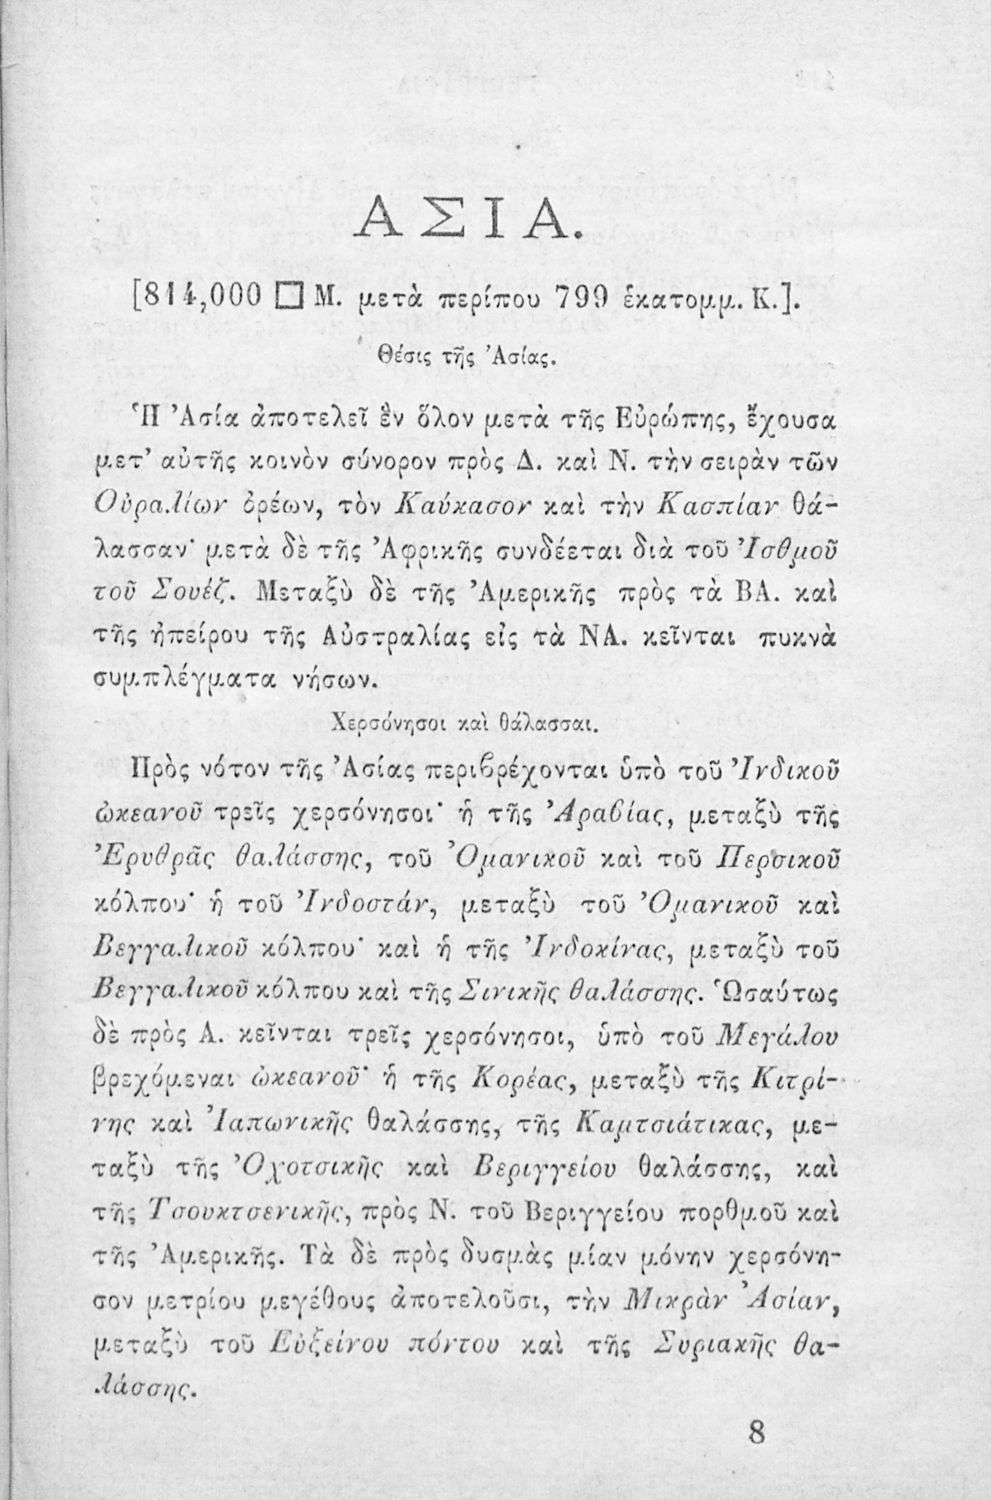 ΑΣΙΑ.
[814,000 □ Μ. μετὰ περίπου 799 ἑκατομμ. Κ.].
Θέσις τῆς Ἀσίας.
Ἡ Ἀσία ἀποτελεῖ ἓν ὅλον μετὰ τῆς Εὐρώπης, ἔχουσα
μετ’ αὐτῆς κοινὸν σύνορον πρὸς Δ. καὶ Ν. τὴν σειρὰν τῶν
Οὐραλίων ὀρέων, τὸν Καύκασον καὶ τὴν Κασπίαν θά-
λασσαν· μετὰ δὲ τῆς Ἀφρικῆς συνδέεται διὰ τοῦ Ἰσθμοῦ
τοῦ Σουέζ. Μεταξὺ δὲ τῆς Ἀμερικῆς πρὸς τὰ ΒΑ. καὶ
τῆς ἠπείρου τῆς Αὐστραλίας εἰς τὰ ΝΑ. κεῖνται πυκνὰ
συμπλέγματα νήσων.
Χερσόνησοι καὶ θάλασσαι.
Πρὸς νότον τῆς Ἀσίας περιβρέχονται ὑπὸ τοῦ Ἰνδικοῦ
ὠκεανοῦ τρεῖς χερσόνησοι· ἡ τῆς Ἀραβίας, μεταξὺ τῆς
Ἐρυθρᾶς θαλάσσης, τοῦ Ὀμανικοῦ καὶ τοῦ Περσικοῦ
κόλπου· ἡ τοῦ Ἰνδοστάν, μεταξὺ τοῦ Ὀμανικοῦ καὶ
Βεγγαλικοῦ κόλπου· καὶ ἡ τῆς Ἰνδοκίνας, μεταξὺ τοῦ
Βεγγαλικοῦ κόλπου καὶ τῆς Σινικῆς θαλάσσης. Ὡσαύτως
δὲ πρὸς Α. κεῖνται τρεῖς χερσόνησοι, ὑπὸ τοῦ Μεγάλου
βρεχόμεναι ὠκεανοῦ· ἡ τῆς Κορέας, μεταξὺ τῆς Κιτρί-
νης καὶ Ἰαπωνικῆς θαλάσσης, τῆς Καμτσιάτικας, με-
ταξὺ τῆς Ὀχοτσικῆς καὶ Βεριγγείου θαλάσσης, καὶ
τῆς Τσουκτσενικῆς, πρὸς Ν. τοῦ Βεριγγείου πορθμοῦ καὶ
τῆς Ἀμερικῆς. Τὰ δὲ πρὸς δυσμὰς μίαν μόνην χερσόνη-
σον μετρίου μεγέθους ἀποτελοῦσι, τὴν Μικρὰν Ἀσίαν,
μεταξὺ τοῦ Εὐξείνου πόντου καὶ τῆς Συριακῆς θα-
λάσσης.
8